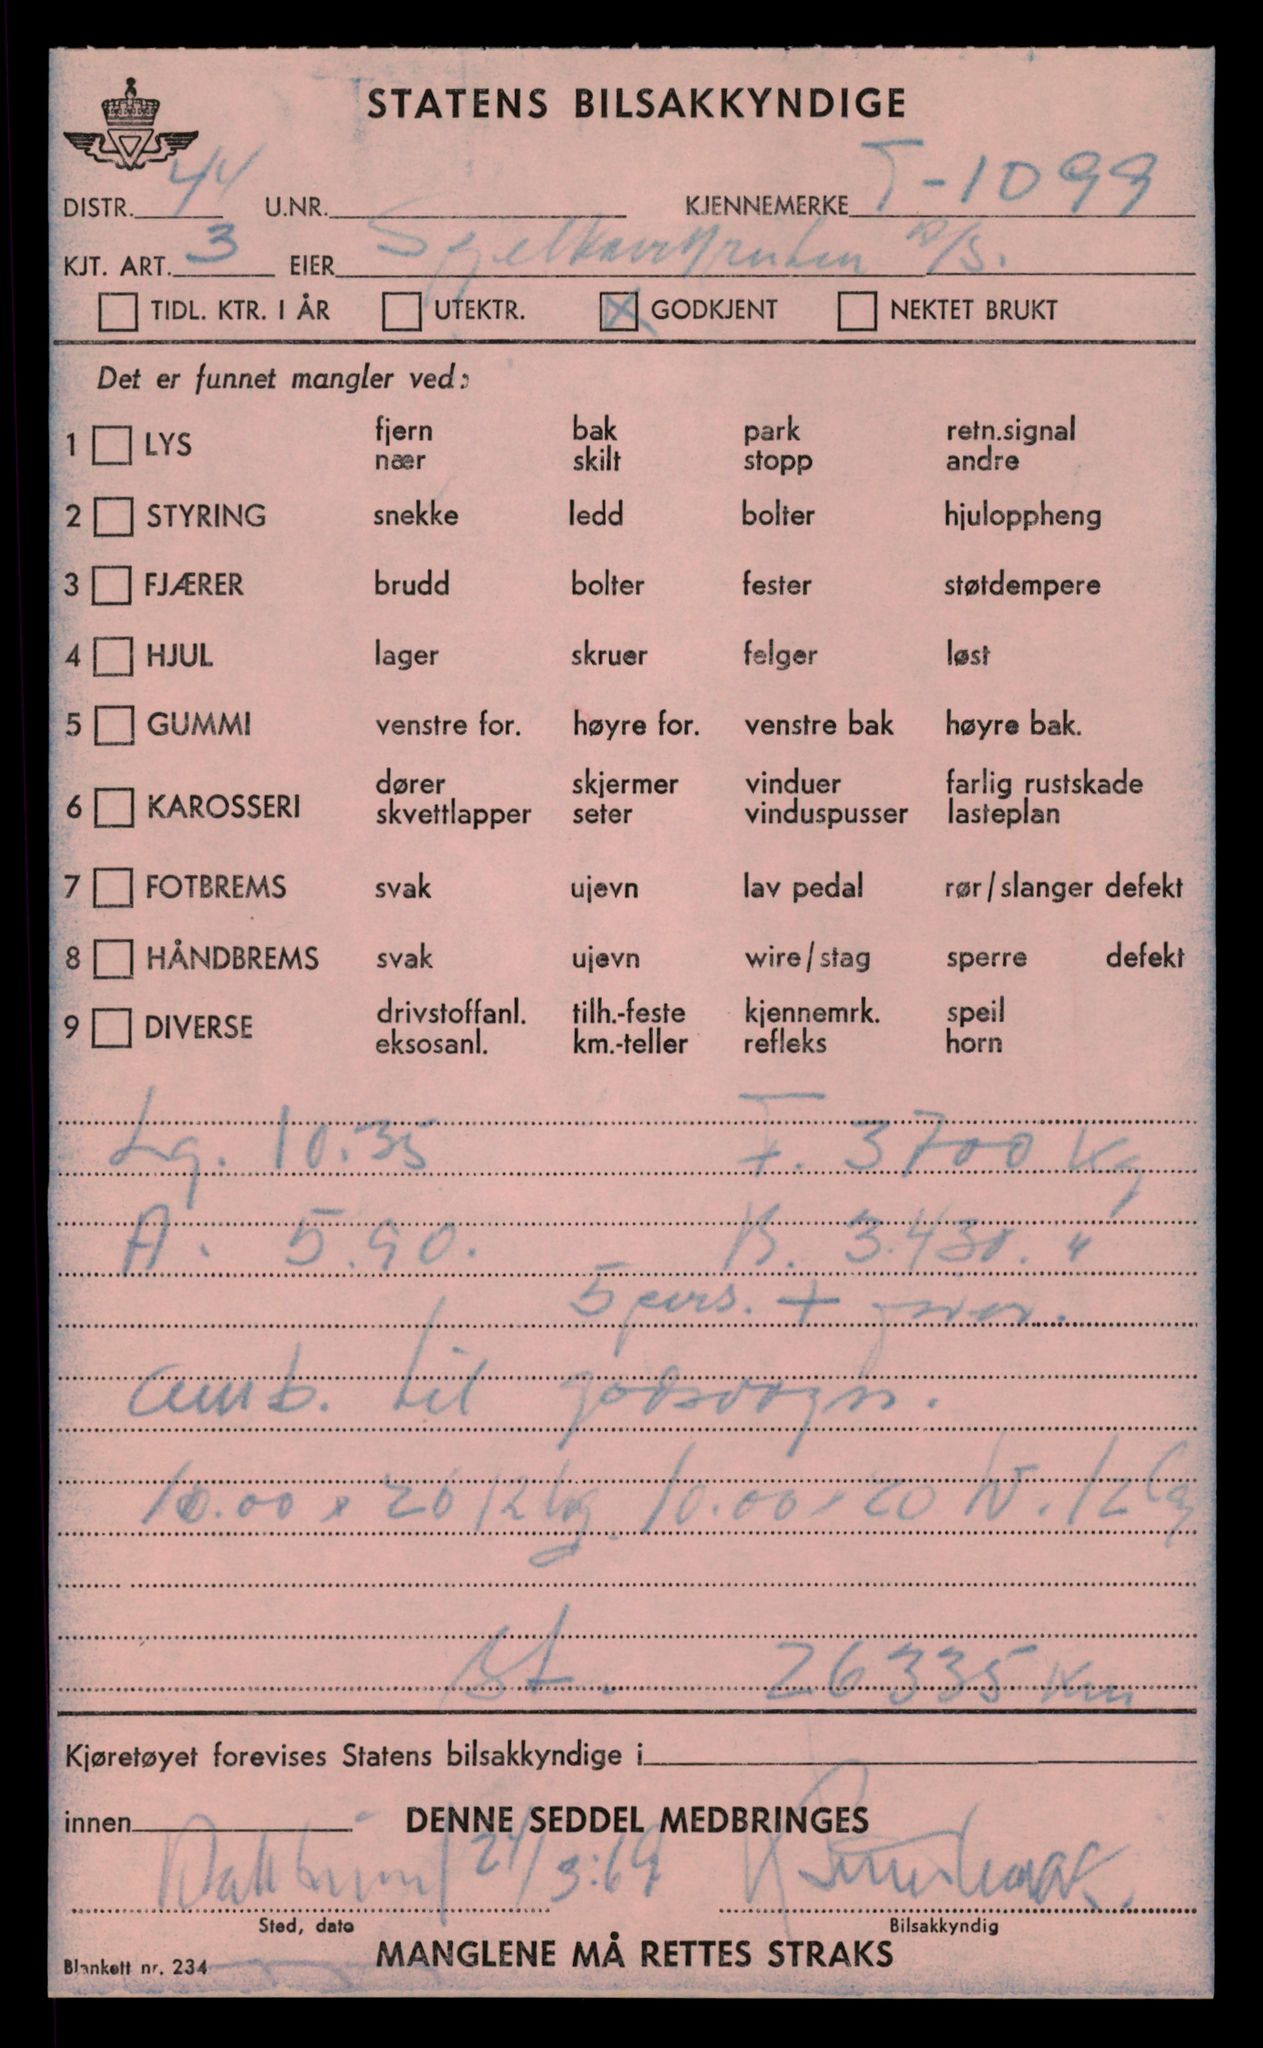 STATENS BILSAKKYNDIGE
DISTR. 44 U.NR. KJENNEMERKE T-1099
KJT. ART. 3 EIER A/S.
TIDL. KTR. I ÅR UTEKTR. X GODKJENT NEKTET BRUKT
Det er funnet mangler ved:
1 LYS fjern bak park retn.signal
nær skilt stopp andre
2 STYRING snekke ledd bolter hjuloppheng
3 FJÆRER brudd bolter fester støtdempere
4 HJUL lager skruer felger løst
5 GUMMI venstre for. høyre for. venstre bak høyre bak.
6 KAROSSERI dører skjermer vinduer farlig rustskade
skvettlapper seter vinduspusser lasteplan
7 FOTBREMS svak ujevn lav pedal rør/slanger defekt
8 HÅNDBREMS svak ujevn wire/stag sperre defekt
9 DIVERSE drivstoffanl. tilh.-feste kjennemrk. speil
eksosanl. km.-teller refleks horn
Lg. 10.35 F. 3700 Kg
A. 5.90. B. 3.430. "
5 pers. +
omb. til godsvogn.
10.00 x 20 12 lg. 10.00 x 20 12 lg
st. 26335 Km
Kjøretøyet forevises Statens bilsakkyndige i
innen DENNE SEDDEL MEDBRINGES
24/3.69
Sted, dato Bilsakkyndig
MANGLENE MÅ RETTES STRAKS
Blankett nr. 234